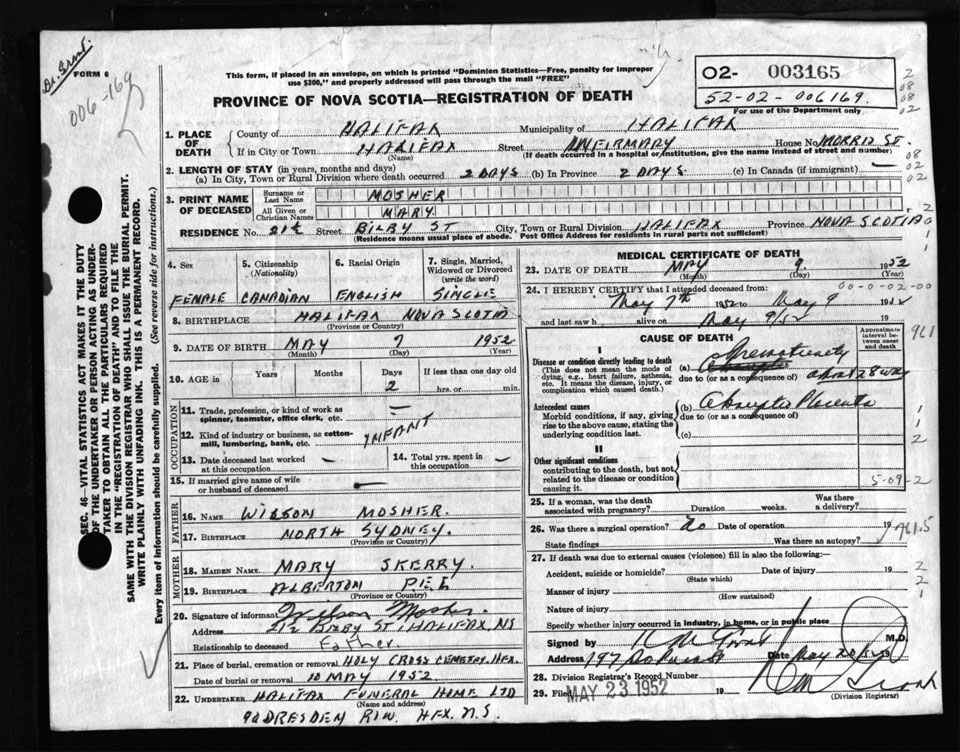 Dr. Grant.
FORM 6
006-169
This form, if placed in an envelope, on which is printed "Dominion Statistics—Free, penalty for improper
use $300," and properly addressed will pass through the mail "FREE"
PROVINCE OF NOVA SCOTIA—REGISTRATION OF DEATH
02- 003165
52-02-006169.
For use of the Department only
2
08
08
02
1. PLACE OF DEATH
County of HALIFAX Municipality of HALIFAX
If in City or Town HALIFAX Street INFIRMARY House No. MORRIS ST.
(Name) (If death occurred in a hospital or institution, give the name instead of street and number)
2. LENGTH OF STAY (in years, months and days)
(a) In City, Town or Rural Division where death occurred 2 DAYS (b) In Province 2 DAYS. (c) In Canada (if immigrant) —
08
02
02
3. PRINT NAME OF DECEASED
Surname or Last Name MOSHER
All Given or Christian Names MARY
RESIDENCE No. 21½ Street BILBY ST City, Town or Rural Division HALIFAX Province NOVA SCOTIA
(Residence means usual place of abode. Post Office Address for residents in rural parts not sufficient)
4. Sex
FEMALE
5. Citizenship
(Nationality)
CANADIAN
6. Racial Origin
ENGLISH
7. Single, Married,
Widowed or Divorced
(write the word)
SINGLE
8. BIRTHPLACE HALIFAX NOVA SCOTIA
(Province or Country)
9. DATE OF BIRTH MAY 7 1952
(Month) (Day) (Year)
10. AGE in Years Months Days 2 If less than one day old
hrs. or min.
OCCUPATION
11. Trade, profession, or kind of work as
spinner, teamster, office clerk, etc. —
12. Kind of industry or business, as cotton-
mill, lumbering, bank, etc. INFANT
13. Date deceased last worked
at this occupation —
14. Total yrs. spent in
this occupation —
15. If married give name of wife
or husband of deceased —
FATHER
16. NAME WILSON MOSHER.
17. BIRTHPLACE NORTH SYDNEY.
(Province or Country)
MOTHER
18. MAIDEN NAME MARY SKERRY.
19. BIRTHPLACE ALBERTON P.E.I
(Province or Country)
20. Signature of informant Wilson Mosher.
Address 21½ BILBY ST. HALIFAX, NS
Relationship to deceased Father.
21. Place of burial, cremation or removal HOLY CROSS CEMETRY. HFX.
Date of burial or removal 10 MAY 1952.
22. UNDERTAKER HALIFAX FUNERAL HOME LTD
(Name and address)
90 DRESDEN ROW. HFX. N.S.
MEDICAL CERTIFICATE OF DEATH
23. DATE OF DEATH MAY 9. 1952
(Month) (Day) (Year)
24. I HEREBY CERTIFY that I attended deceased from: 00-0-02-00
May 7th 1952 to May 9 1952
and last saw h alive on May 9/52 19
CAUSE OF DEATH
Approximate
interval be-
tween onset
and death
961
I
Disease or condition directly leading to death
(This does not mean the mode of
dying, e.g., heart failure, asthenia,
etc. It means the disease, injury, or
complication which caused death.)
(a) Prematurity
due to (or as a consequence of) about 28 wks
Antecedent causes
Morbid conditions, if any, giving
rise to the above cause, stating the
underlying condition last.
(b) Abruptio Placenta
due to (or as a consequence of)
(c)
1
1
2
II
Other significant conditions
contributing to the death, but not
related to the disease or condition
causing it.
5-09-2
25. If a woman, was the death
associated with pregnancy? Duration weeks. Was there
a delivery?
26. Was there a surgical operation? no Date of operation 19
State findings Was there an autopsy?
961.5
27. If death was due to external causes (violence) fill in also the following:—
Accident, suicide or homicide? Date of injury 19
(State which)
Manner of injury
(How sustained)
Nature of injury
Specify whether injury occurred in industry, in home, or in public place
2
2
1
Signed by M.D.
Address 197 Date May 20
28. Division Registrar's Record Number
29. Filed MAY 23 1952 19
(Division Registrar)
SEC. 46—VITAL STATISTICS ACT MAKES IT THE DUTY
OF THE UNDERTAKER OR PERSON ACTING AS UNDER-
TAKER TO OBTAIN ALL THE PARTICULARS REQUIRED
IN THE "REGISTRATION OF DEATH" AND TO FILE THE
SAME WITH THE DIVISION REGISTRAR WHO SHALL ISSUE THE BURIAL PERMIT.
WRITE PLAINLY WITH UNFADING INK. THIS IS A PERMANENT RECORD.
Every item of information should be carefully supplied. (See reverse side for instructions.)